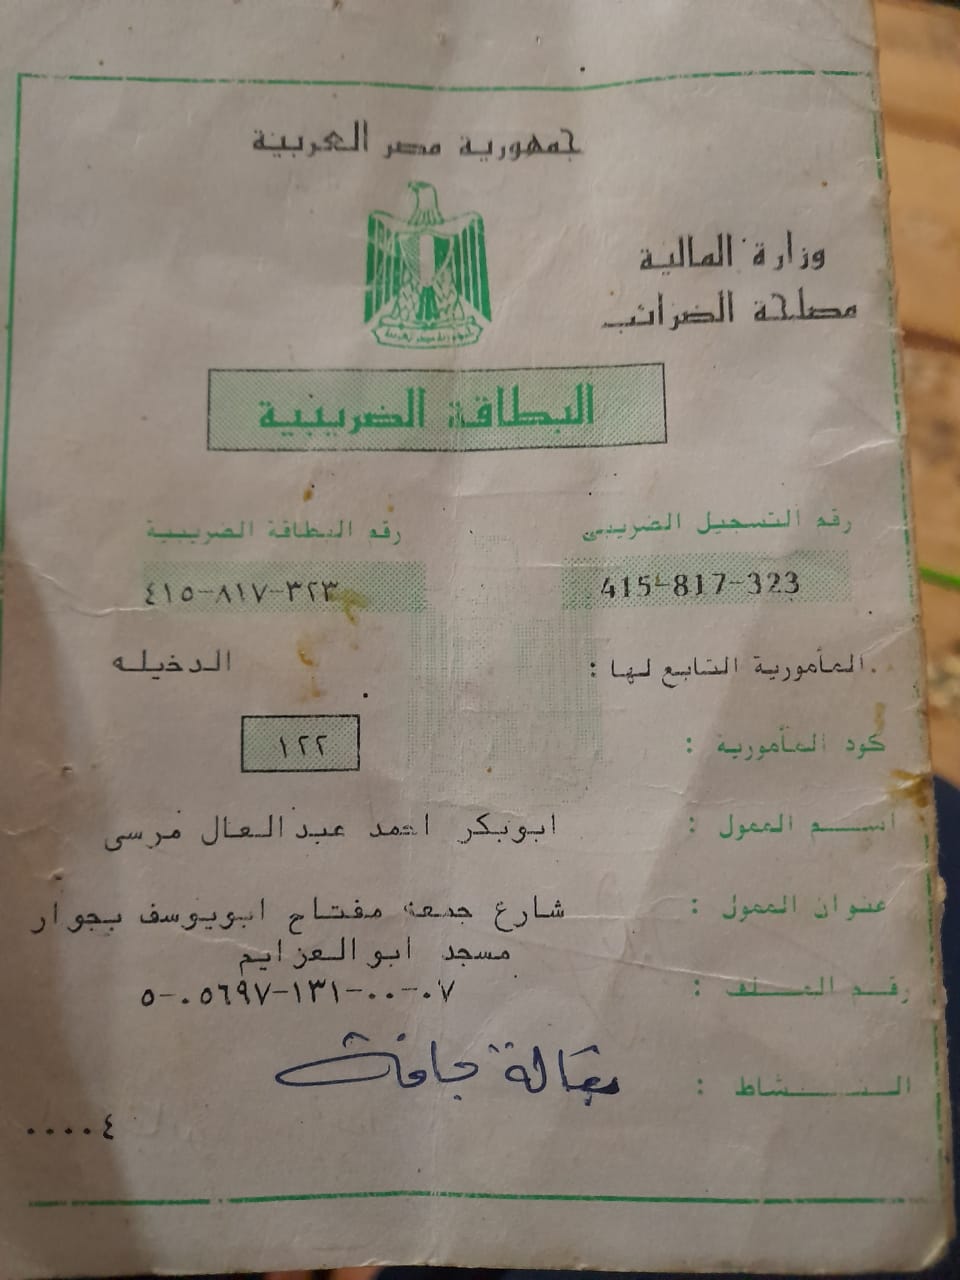 جمهورية مصر العربية
وزارة المالية
مصلحة الضرائب
جمهورية مصر العربية
البطاقة الضريبية
رقم التسجيل الضريبى رقم البطاقة الضريبية
415-817-323 ٤١٥-٨١٧-٣٢٣
المأمورية التابع لها : الدخيله
كود المأمورية : ١٢٢
اسم الممول : ابوبكر احمد عبدالعال مرسى
عنوان الممول : شارع جمعه مفتاح ابويوسف بجوار
مسجد ابو العزايم
رقم الملف : ٥-٠٥٦٩٧-١٣١-٠٠-٠٧
النشاط : بقالة جافة
٠٠٠٠٤